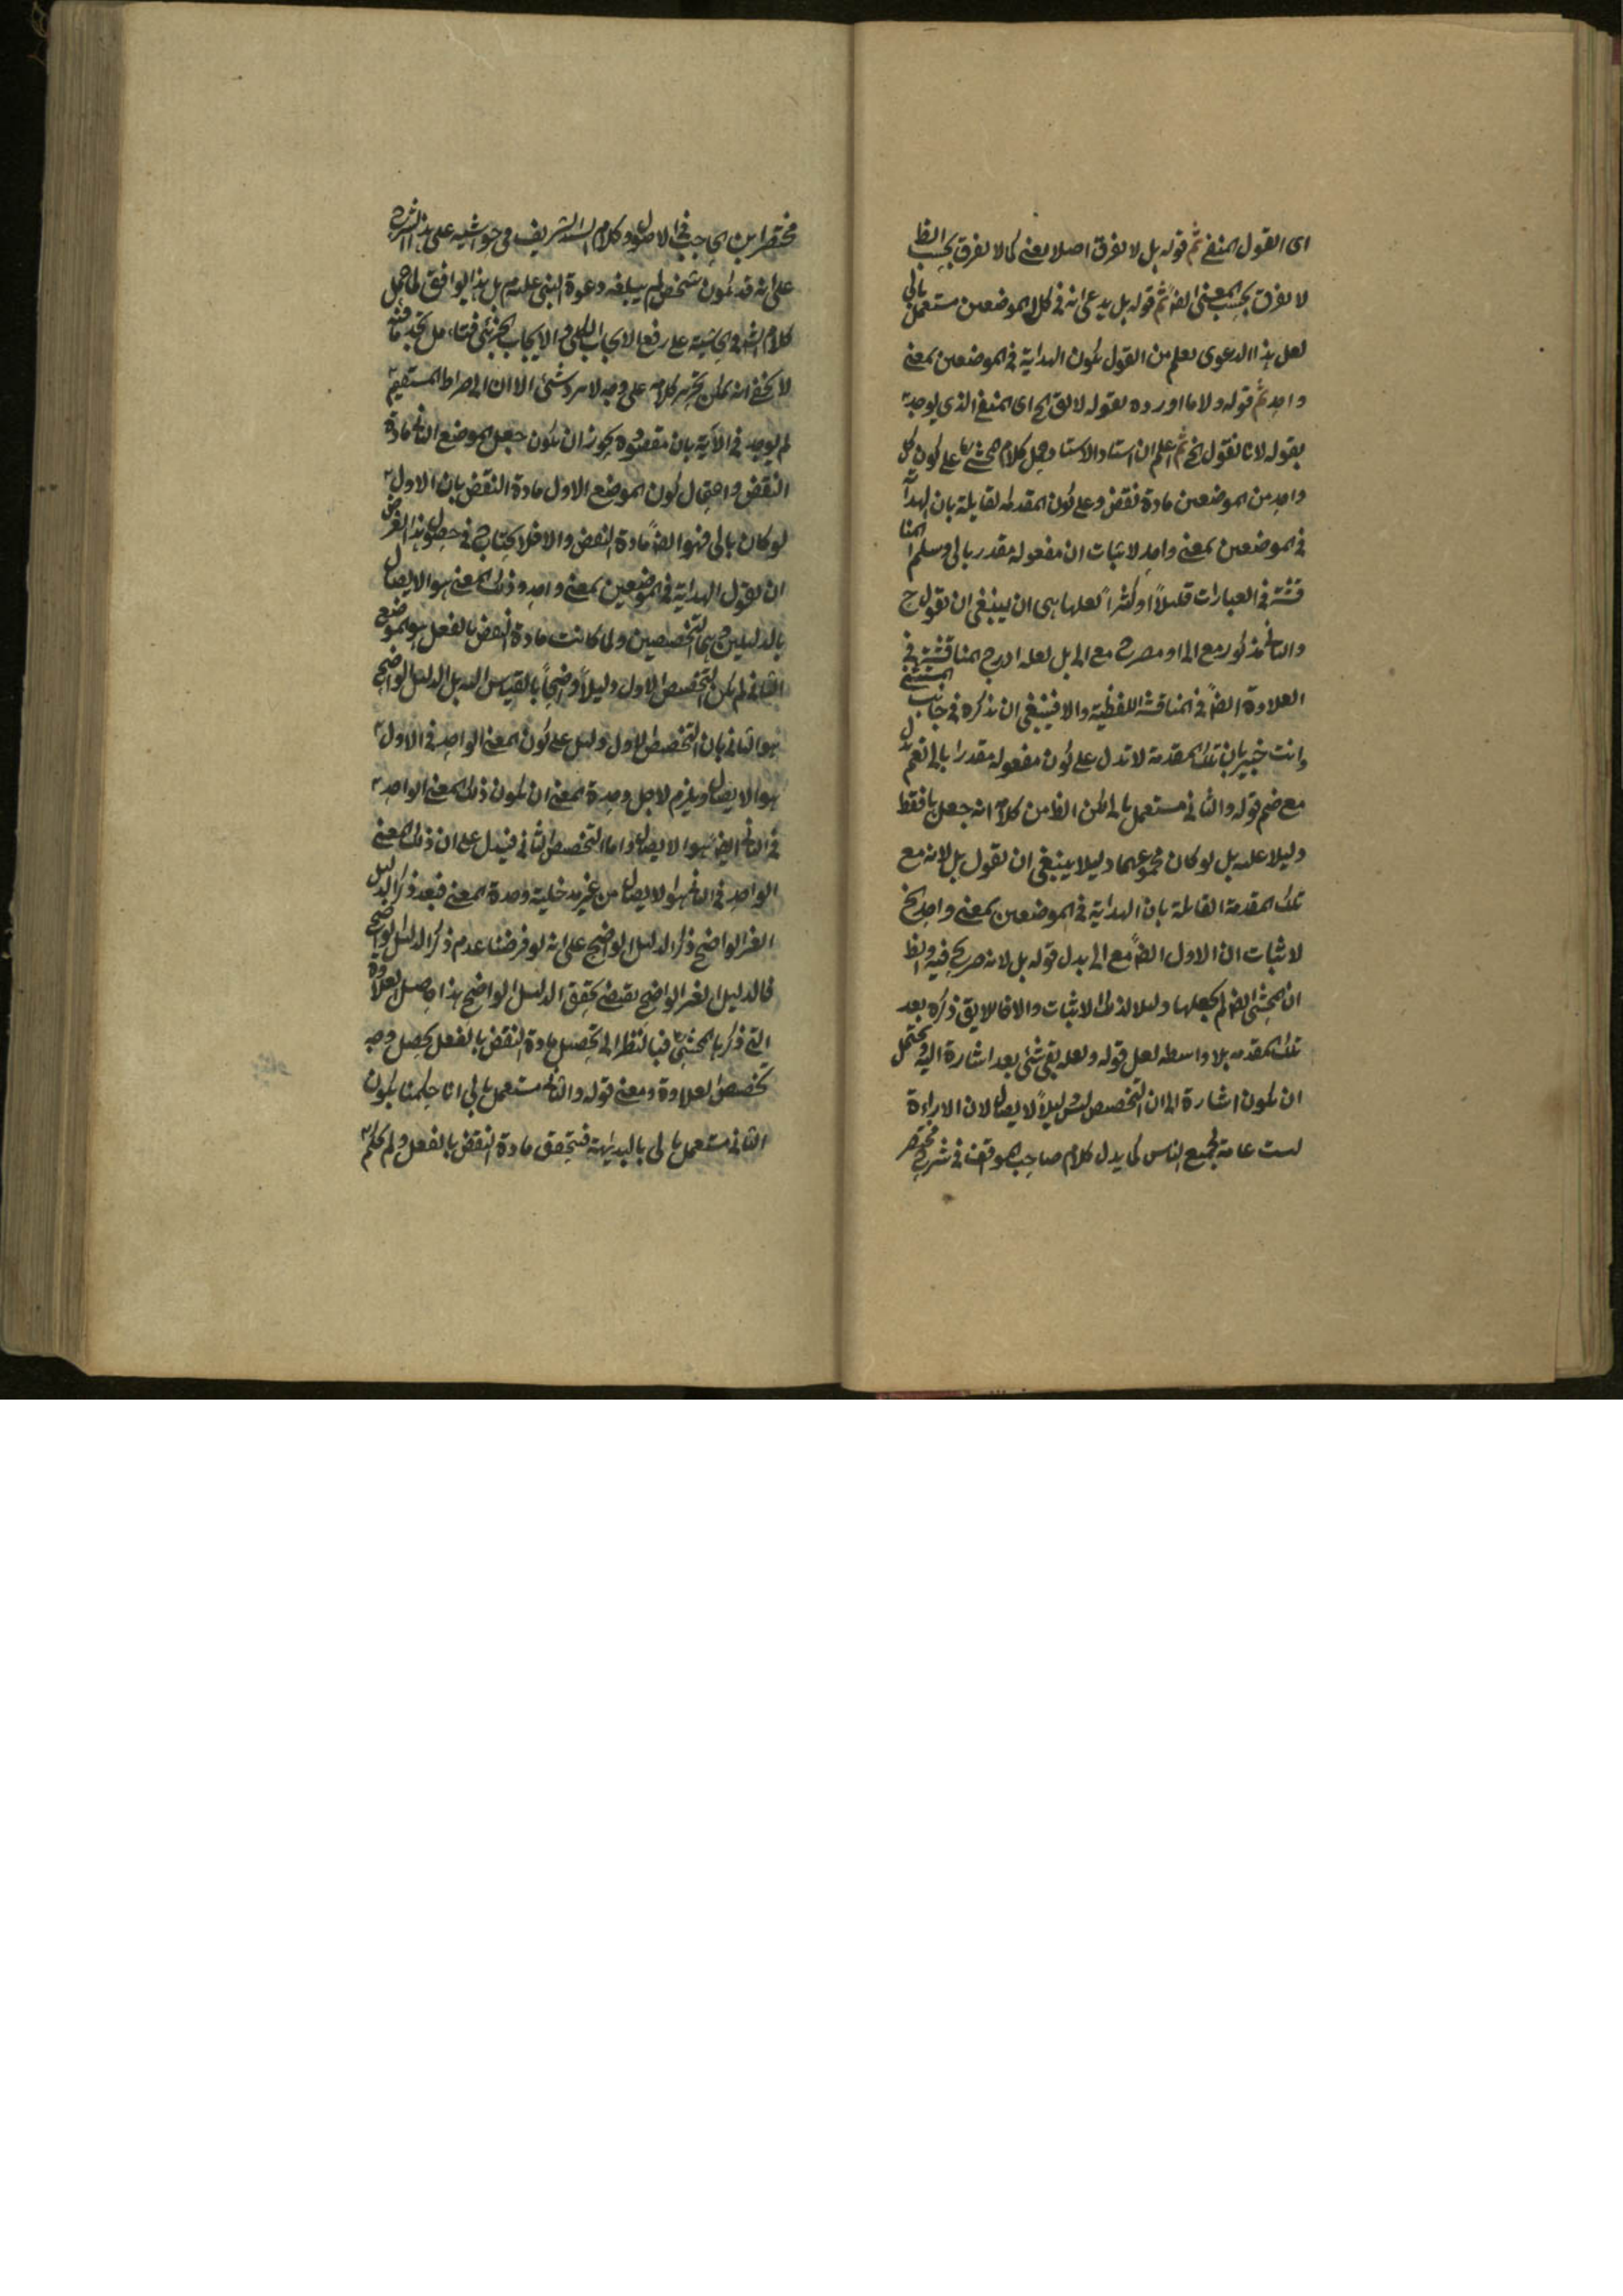 اى القول المنفى ثم قوله بل لا يفرق اصلا يعنى كما لا يفرق بحسب الظ
لا يفرق بحسب المعنى ايضا ثم قوله بل يدعى انه فى كلا الموضعين مستعمل بالى
لعل هذا الدعوى يعلم من القول بكون الهداية فى الموضعين بمعنى
واحد ثم قوله ولا ما اورده بقوله لا يق الخ اى المنفى الذى يوجد
بقوله لانا نقول الخ ثم اعلم ان استاد الاستاد حمل كلام المحشى على كون كل
واحد من الموضعين مادة نقض وعلى كون المقدمة القايلة بان الهداية
فى الموضعين بمعنى واحد لاثبات ان مفعوله مقدر بالى وسلم المنا
قشة فى العبارات قليلاً او كثيراً لعلها هى ان ينبغى ان يقول ح
والثانى مذكور مع الى او مصرح مع الى بل لعله ادرج المناقشة فى
العلاوة ايضاً فى المناقشة اللفظية والا فينبغى ان يذكره فى جانب المستثنى
وانت خبير بان تلك المقدمة لا تدل على كون مفعوله مقدرا بالى نعم تدل
مع ضم قوله والثانى مستعمل بالى لكن الظ من كلامه انه جعلها فقط
دليلا عليه بل لو كان مجموعهما دليلا ينبغى ان يقول بل لانه مع
تلك المقدمة القايلة بان الهداية فى الموضعين بمعنى واحد الخ
لاثبات ان الاول ايضاً مع الى بدل قوله بل لانه صريح فيه والظ
ان المحشى ايضا لم يجعلها دليلا لذلك الاثبات والا فاللايق ذكره بعد
تلك المقدمه بلا واسطه لعل قوله ولعله بقى شئ بعد اشارة اليه ويحتمل
ان يكون اشارة الى ان التخصيص ليس دليلاً لايصال لان الاراءة
ليست عامة لجميع الناس كما يدل كلام صاحب المواقف فى شرح مختصر
مختصر ابن الحاجب فى الاصول وكلام السيد الشريف فى حواشيه على هذا الشرح
على انه قد يكون شخص لم يبلغه دعوة النبى عليه م بل هذا يوافق لما حمل
كلام الش فى الحاشية على رفع الايجاب الكلى والايجاب الجزئى فتامل تجد ما فيه
لا يخفى انه يمكن تحرير كلامه على وجه لا يرد شئ الا ان الى صراط المستقيم
لم يوجد فى الآية بان مقصوده يجوز ان يكون جعل الموضع الثانى مادة
النقض واحتمال كون الموضع الاول مادة النقض بان الاول
لو كان بالى فهو ايضاً مادة النقض والا فلا يحتاج فى حصول هذا الغرض
ان يقول الهداية فى الموضعين بمعنى واحد وذلك المعنى هو الايصال
بالدليلين هى التخصيصين ولما كانت مادة النقض بالفعل هو الموضع
الثانى لم يكن التخصيص الاول دليلاً واضحاً بالقياس اليه بل الدليل الواضح
هو الثانى بان التخصيص الاول دليل على كون المعنى الواحد فى الاول
هو الايصال ويلزم لاجل وحدة المعنى ان يكون ذلك المعنى الواحد
فى الثانى ايضا هو الايصال واما التخصيص الثانى فيدل على ان ذلك المعنى
الواحد فى الثانى هو الايصال من غير مدخلية وحدة المعنى فبعد ذكر الدليل
الغير الواضح ذكر الدليل الواضح على انه لو فرضنا عدم ذكر الدليل الواضح
فالدليل الغير الواضح يقتضى تحقق الدليل الواضح هذا حاصل العلاوة
التى ذكرها المحشى فبالنظر الى تحصيل مادة النقض بالفعل يحصل وجه
تخصيص العلاوة ومعنى قوله والثانى مستعمل بالى انا حكمنا بكون
الثانى مستعمل بالى بالبديهة فيتحقق مادة النقض بالفعل ولم يحكم